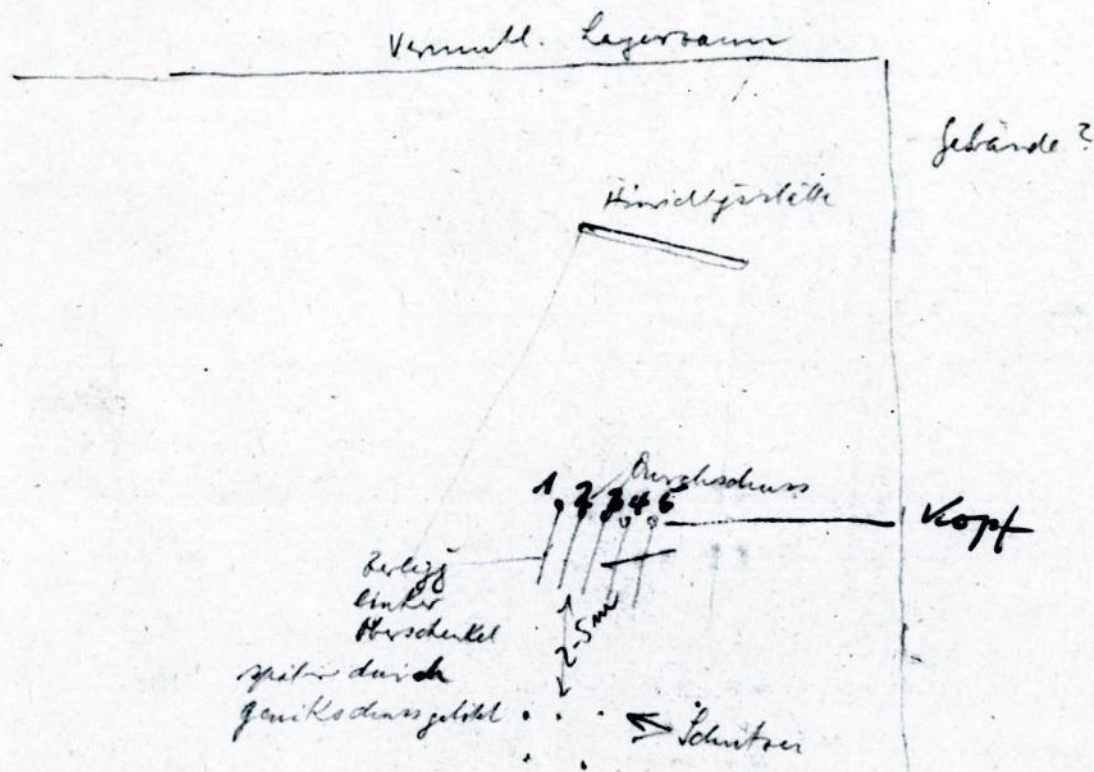 Vermutl. Lagerraum
Gebäude?
Hinrichtgsstätte
Durchschuss
1 2 3 4 5
Kopf
Verletzg
linker
Oberschenkel
2-5m
später durch
genikschuss getötet
Schützen